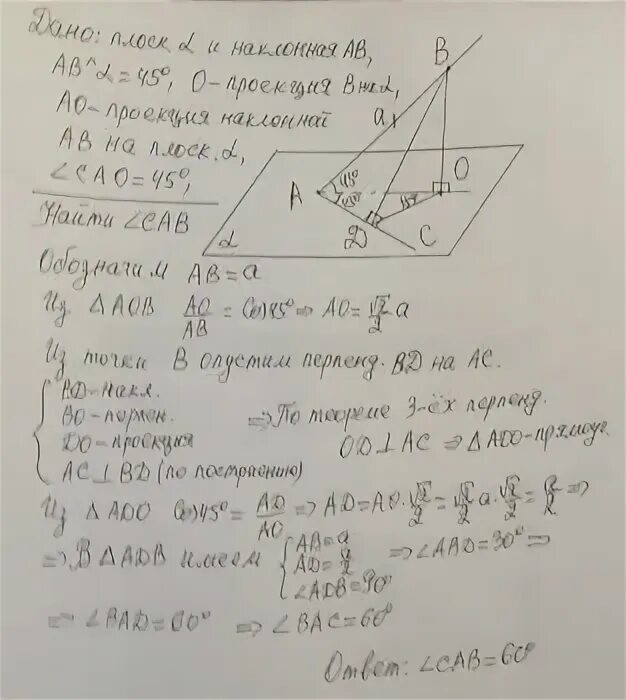 Дано: плоск. α и наклонная AB,
AB^α=45°, O-проекция B на α,
AO-проекция наклонной
AB на плоск. α,
∠CAO=45°,
Найти ∠CAB
B
a
A
45°
45°
O
D
C
α
Обозначим AB=a
Из △AOB AO/AB = Cos45° ⇒ AO=√2/2 a
Из точки B опустим перпенд. BD на AC.
BD-накл.
BO-перпен.
DO-проекция
AC⊥BD (по построению)
⇒ По теореме 3-ёх перпенд.
OD⊥AC ⇒ △ADO-прямоуг.
Из △ADO Cos45°= AD/AO ⇒ AD=AO·√2/2=√2/2 a·√2/2= a/2 ⇒
⇒ В △ADB имеем
AB=a
AD=a/2
∠ADB=90°
⇒ ∠ABD=30° ⇒
⇒ ∠BAD=60° ⇒ ∠BAC=60°
Ответ: ∠CAB=60°